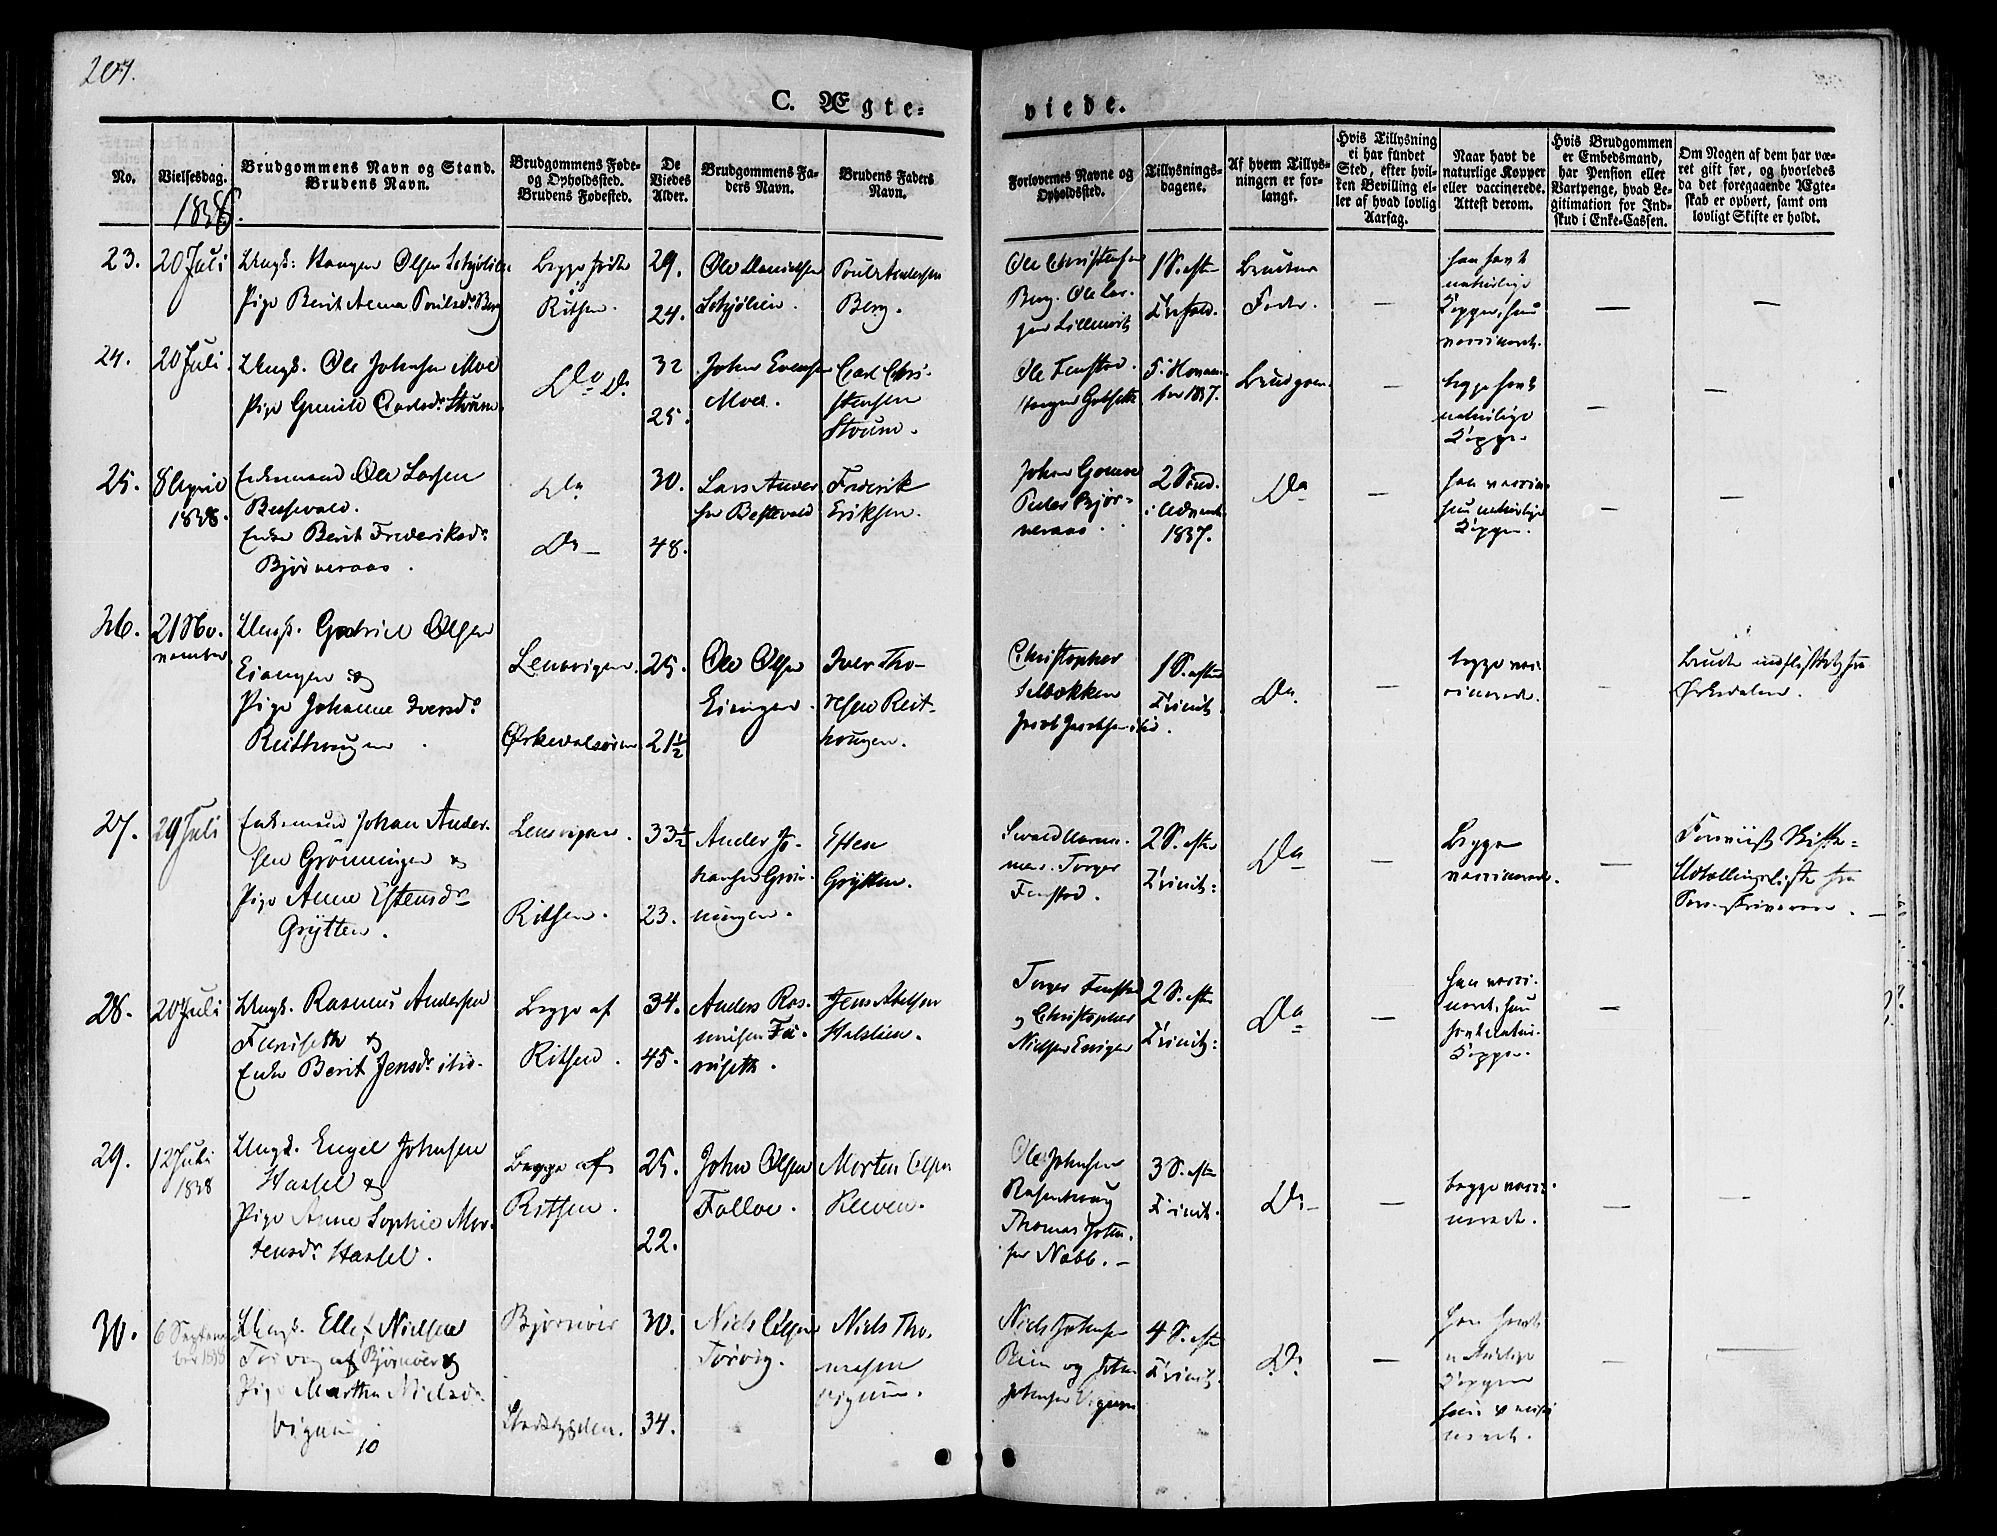 204.
C. Ægte-
viede.
No.
Vielsesdag.
Brudgommens Navn og Stand.
Brudens Navn.
Brudgommens Føde-
og Opholdssted.
Brudens Fødested.
De
Viedes
Alder.
Brudgommens Fa-
ders Navn.
Brudens Faders
Navn.
Forlovernes Navne og
Opholdssted.
Tillysnings-
dagene.
Af hvem Tillys-
ningen er for-
langt.
Hvis Tillysning
ei har fundet
Sted, efter hvil-
ken Bevilling el-
ler af hvad lovlig
Aarsag.
Naar havt de
naturlige Kopper
eller vaccinerede.
Attest derom.
Hvis Brudgommen
er Embedsmand,
har Pension eller
Vartpenge, hvad Le-
gitimation for Ind-
skud i Enke-Cassen.
Om Nogen af dem har væ-
ret gift før, og hvorledes
da det foregaaende Ægte-
skab er ophørt, samt om
lovligt Skifte er holdt.
1838.
23.
20 Juli
Ungk: Haagen Olsen
Pige Berit Anna Poulsdr Berg
Begge fødte
Ritsen.
29.
24.
Ole
Poul Andersen
Berg.
Ole Christensen
Berg. Ole
1 S. efter
Brudens
Fader.
han havt
naturlige
Kopper, hun
vaccineret.
24.
20 Juli.
Ungk. Ole Johnsen Moe
Pige Gunild Carlsdr Straum.
Do Do
32
25.
John Evensen
Moe.
Carl Chri-
stensen
Straum.
Ole Fenstad.
5 Novem-
ber 1837.
Brudgom.
begge havt
naturlige
Kopper.
25.
8 April
1838.
Enkemand Ole Larsen
Bessevold.
Enke Berit Frederiksdr
Bjørneraas.
Do
Do
30.
48.
Lars Ander
sen Bessevold
Frederik
Eriksen.
Johan
Peder Bjør-
neraas.
2 Sønd.
i Advent
1837.
Do
han vaccin.
hun naturlige
Kopper.
26.
21 No-
vember
Ungk. Gabriel Olsen
Eiangen &
Pige Johanne Iversdr
Reithaugen.
Lensvigen.
Ørkedalsøren
25.
21½
Ole Olsen
Eiangen.
Iver Tho-
resen Reit-
haugen.
Christopher
Selbækken
Jacob Jacobsen ibid.
1 S. efter
Trinit.
Do.
begge vac-
cinerede.
Bruden indflyttet fra
Ørkedalen.
27.
29 Juli
Enkemand Johan Ander-
sen Grønningen &
Pige Anne Estensdr
Grytten.
Lensvigen.
Ritsen.
33½
23.
Anders Jo-
hansen Grøn-
ningen.
Esten
Grytten.
Torger
Fenstad.
2 S. efter
Trinit:
Do
Begge
vaccinerede.
Foreviist Skifte-
Udtællingsliste fra
Sorenskriveren.
28.
20 Juli
Ungk. Rasmus Andersen
Fenisetk &
Enke Berit Jensdr ibid.
Begge af
Ritsen.
34.
45.
Anders Ras-
musen
Jens
Torger Fenstad
og Christopher
Nielsen
2 S. efter
Trinit:
Do
han vacci-
neret, hun
havt natur.
Kopper.
29.
12 Juli
1838
Ungk. Engel Johnsen
Hassel &
Pige Anne Sophie Mor-
tensdr Hassel.
Begge af
Ritsen.
25.
22.
John Olsen
Falloe.
Morten Olsen
Reeven.
Ole Johnsen
Rasenhaug
Thomas John-
sen Nabb.
3 S. efter
Trinit.
Do
begge vacci-
nerede.
30.
6 Septem-
ber 1838
Ungk. Ellef Nielsen
Torvig af Bjørnør &
Pige Martha Nielsdr
Vigum
10
Bjørnøer
Stadsbygden.
30.
34.
Niels Olsen
Torvig.
Niels Tho-
mesen
Vigum.
Niels Johnsen
Rein og John
Johnsen Vigum
4 S. efter
Trinit.
Do
han havt
naturlige
Kopper
hun vacci-
neret.